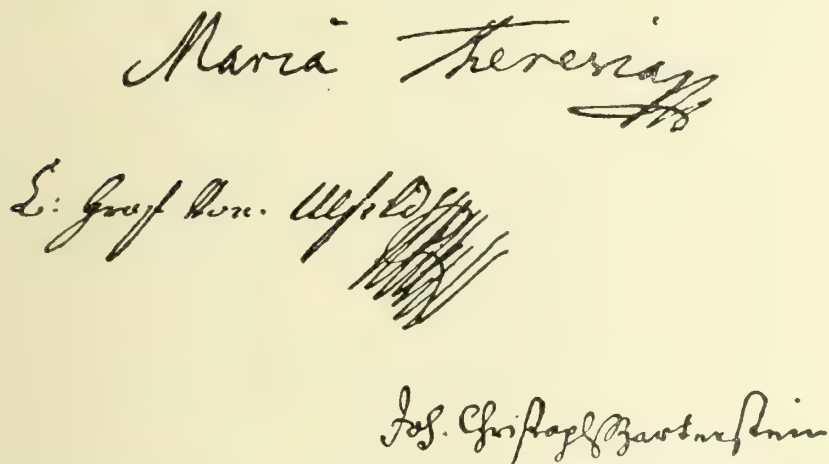 Maria Theresia
C: Graf von. Ulfeld
Joh. Christoph Bartenstein